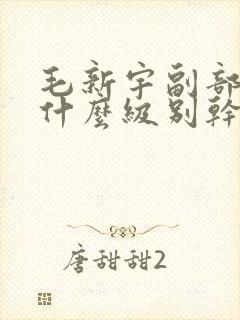 毛新宇副部
什麼級别幹
唐甜甜2